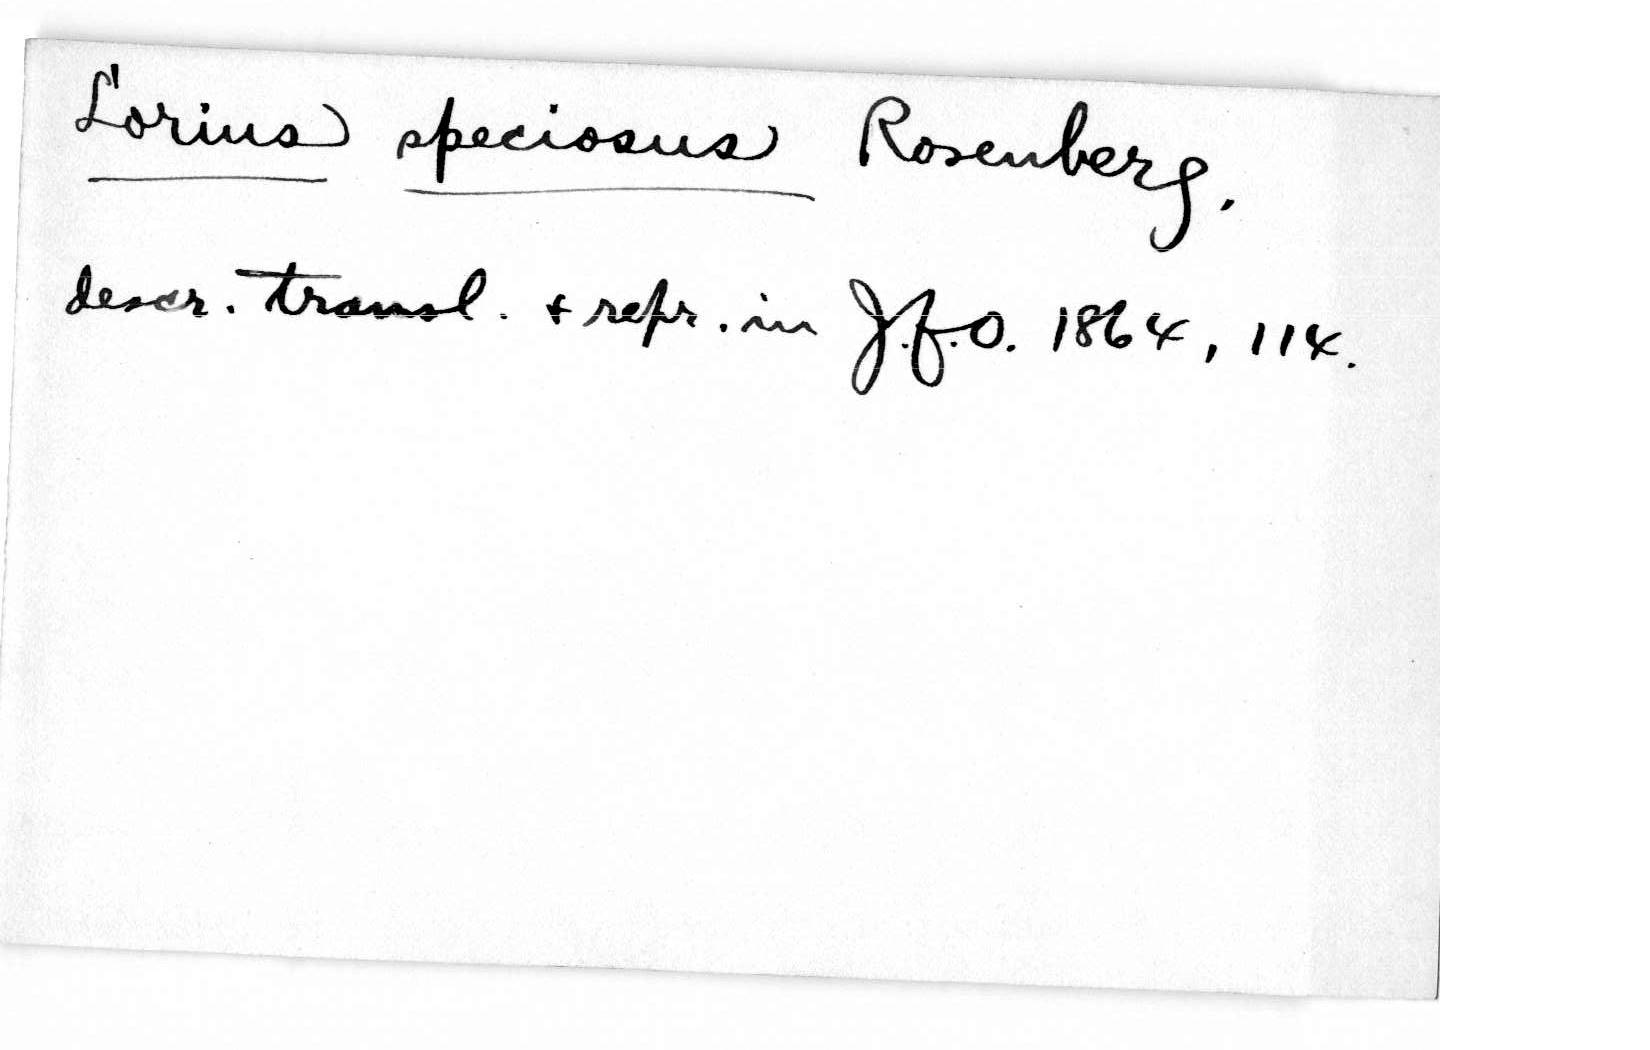 Lorius speciosus Rosenberg.
descr. transl. + repr. in J.f.O. 1864, 114.